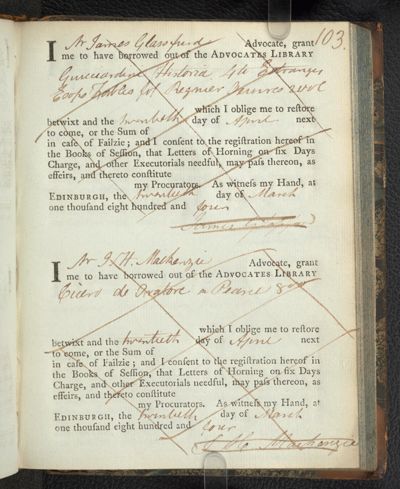 103.
I Mr James Glassfurd Advocate, grant
me to have borrowed out of the ADVOCATES LIBRARY
Guicciardini Historia 4to
which I oblige me to reſtore
betwixt and the twentieth day of April next
to come, or the Sum of
in caſe of Failzie; and I conſent to the regiſtration hereof in
the Books of Seſſion, that Letters of Horning on ſix Days
Charge, and other Executorials needful, may paſs thereon, as
effeirs, and thereto conſtitute
my Procurators. As witneſs my Hand, at
EDINBURGH, the twentieth day of March
one thouſand eight hundred and four
James
I Mr J. H. Mackenzie Advocate, grant
me to have borrowed out of the ADVOCATES LIBRARY
Cicero de Oratore a Pearce 8vo
which I oblige me to reſtore
betwixt and the twentieth day of April next
to come, or the Sum of
in caſe of Failzie; and I conſent to the regiſtration hereof in
the Books of Seſſion, that Letters of Horning on ſix Days
Charge, and other Executorials needful, may paſs thereon, as
effeirs, and thereto conſtitute
my Procurators. As witneſs my Hand, at
EDINBURGH, the twentieth day of March
one thouſand eight hundred and four
Mackenzie